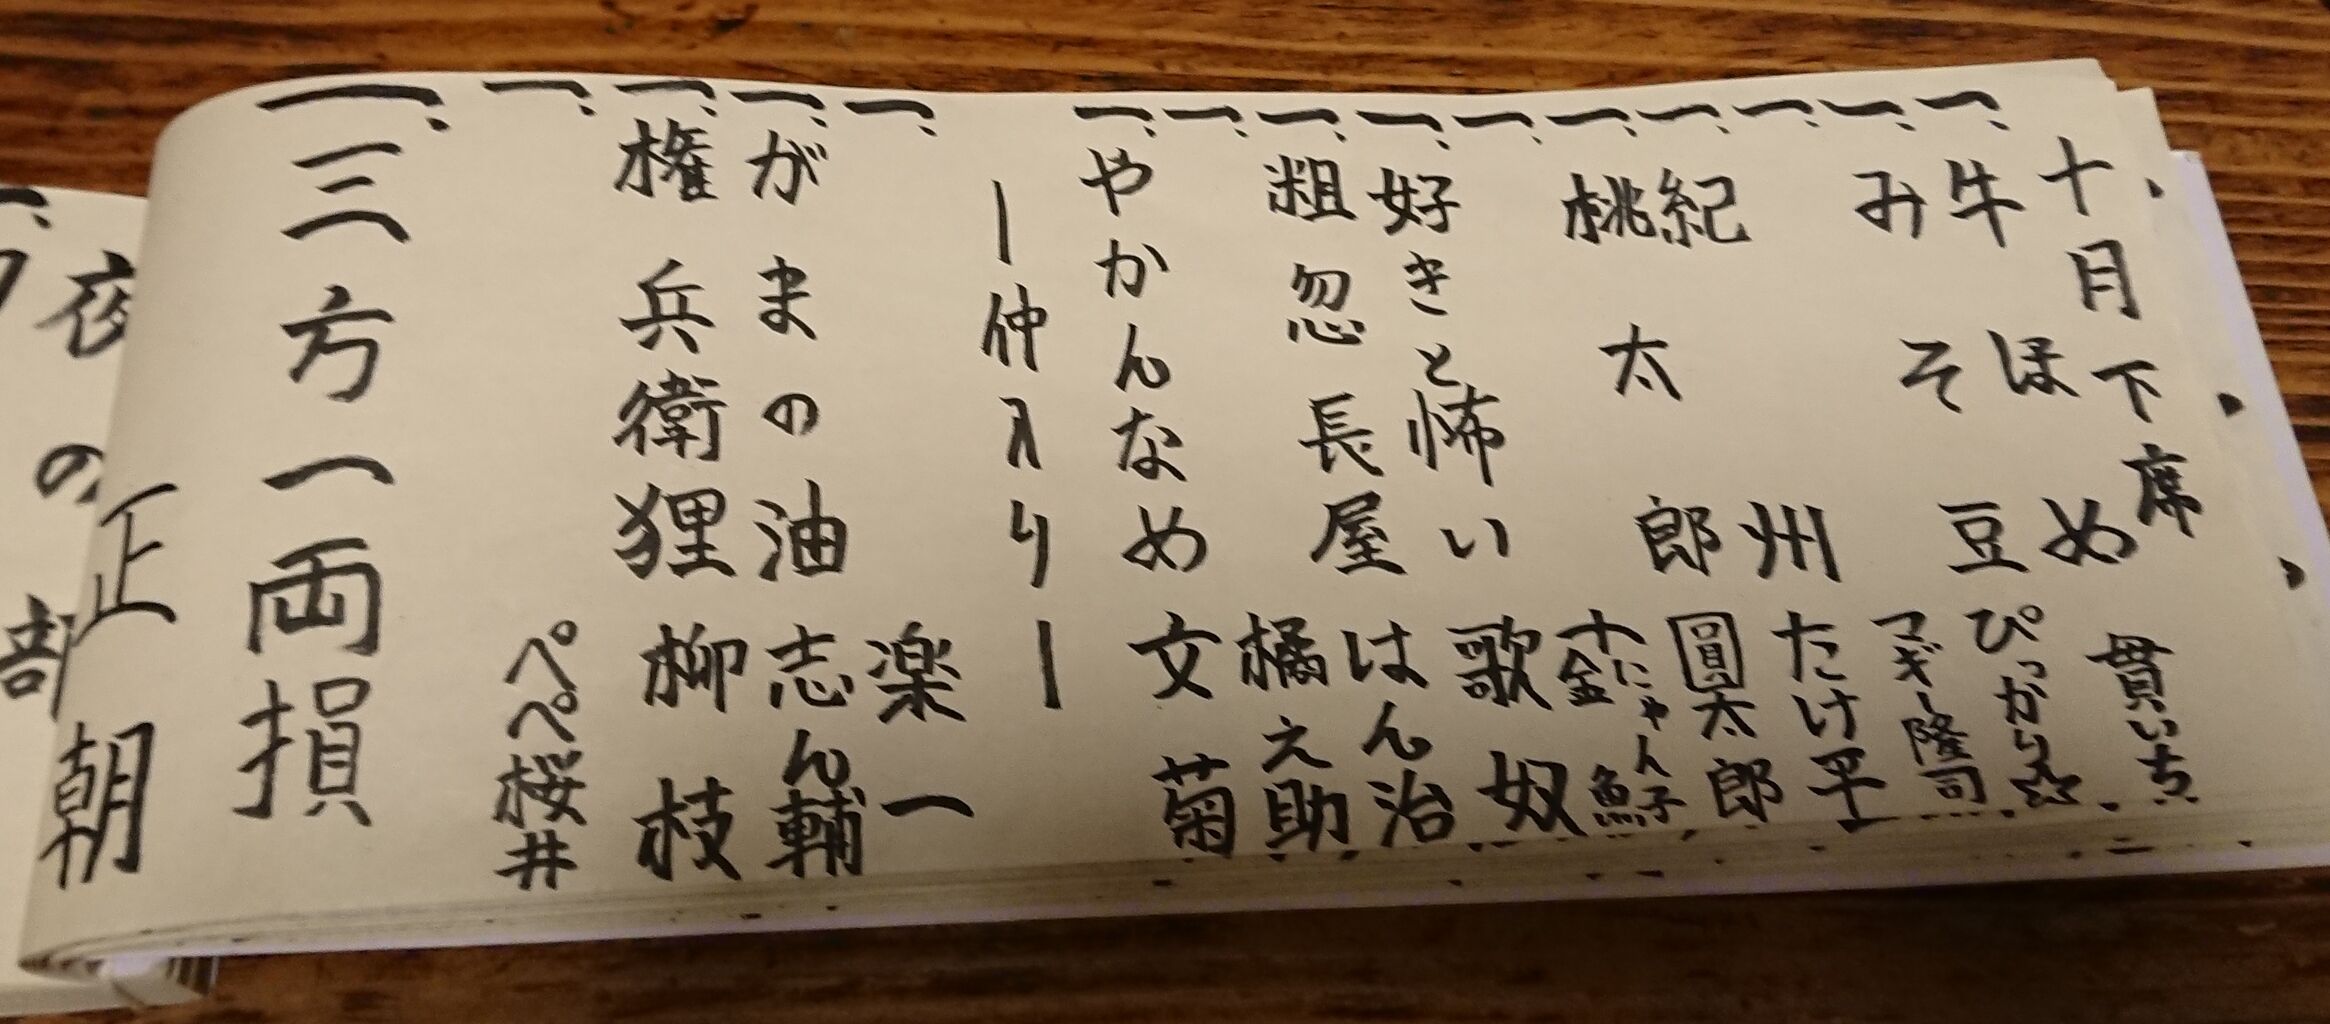 十月下席
一、牛ほめ 貫いち
一、みそ豆 ぴっかり☆
一、マギー隆司
一、紀州 たけ平
一、桃太郎 圓太郎
一、にゃん子 金魚
一、好きと怖い 歌奴
一、粗忽長屋 はん治
一、橘之助
一、やかんなめ 文菊
ー仲入りー
一、楽一
一、がまの油 志ん輔
一、権兵衛狸 柳枝
一、ペペ桜井
一、三方一両損 正朝
夜の部